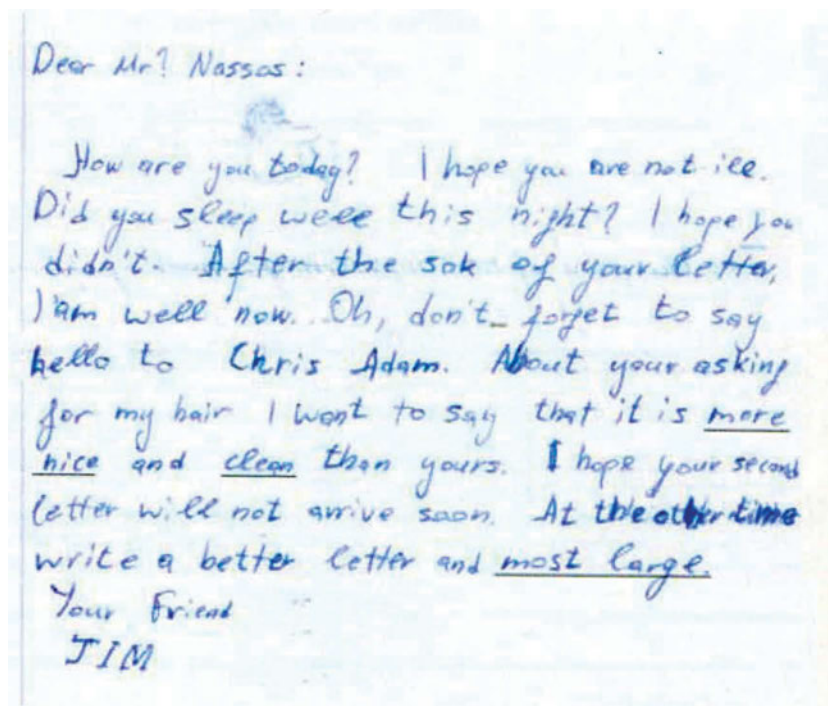 Dear Mr? Nassos:
How are you today? I hope you are not ill.
Did you sleep well this night? I hope you
didn't. After the sok of your letter,
I am well now. Oh, don't forget to say
hello to Chris Adam. About your asking
for my hair I want to say that it is more
nice and clean than yours. I hope your second
letter will not arrive soon. At the other time
write a better letter and most large.
Your Friend
JIM